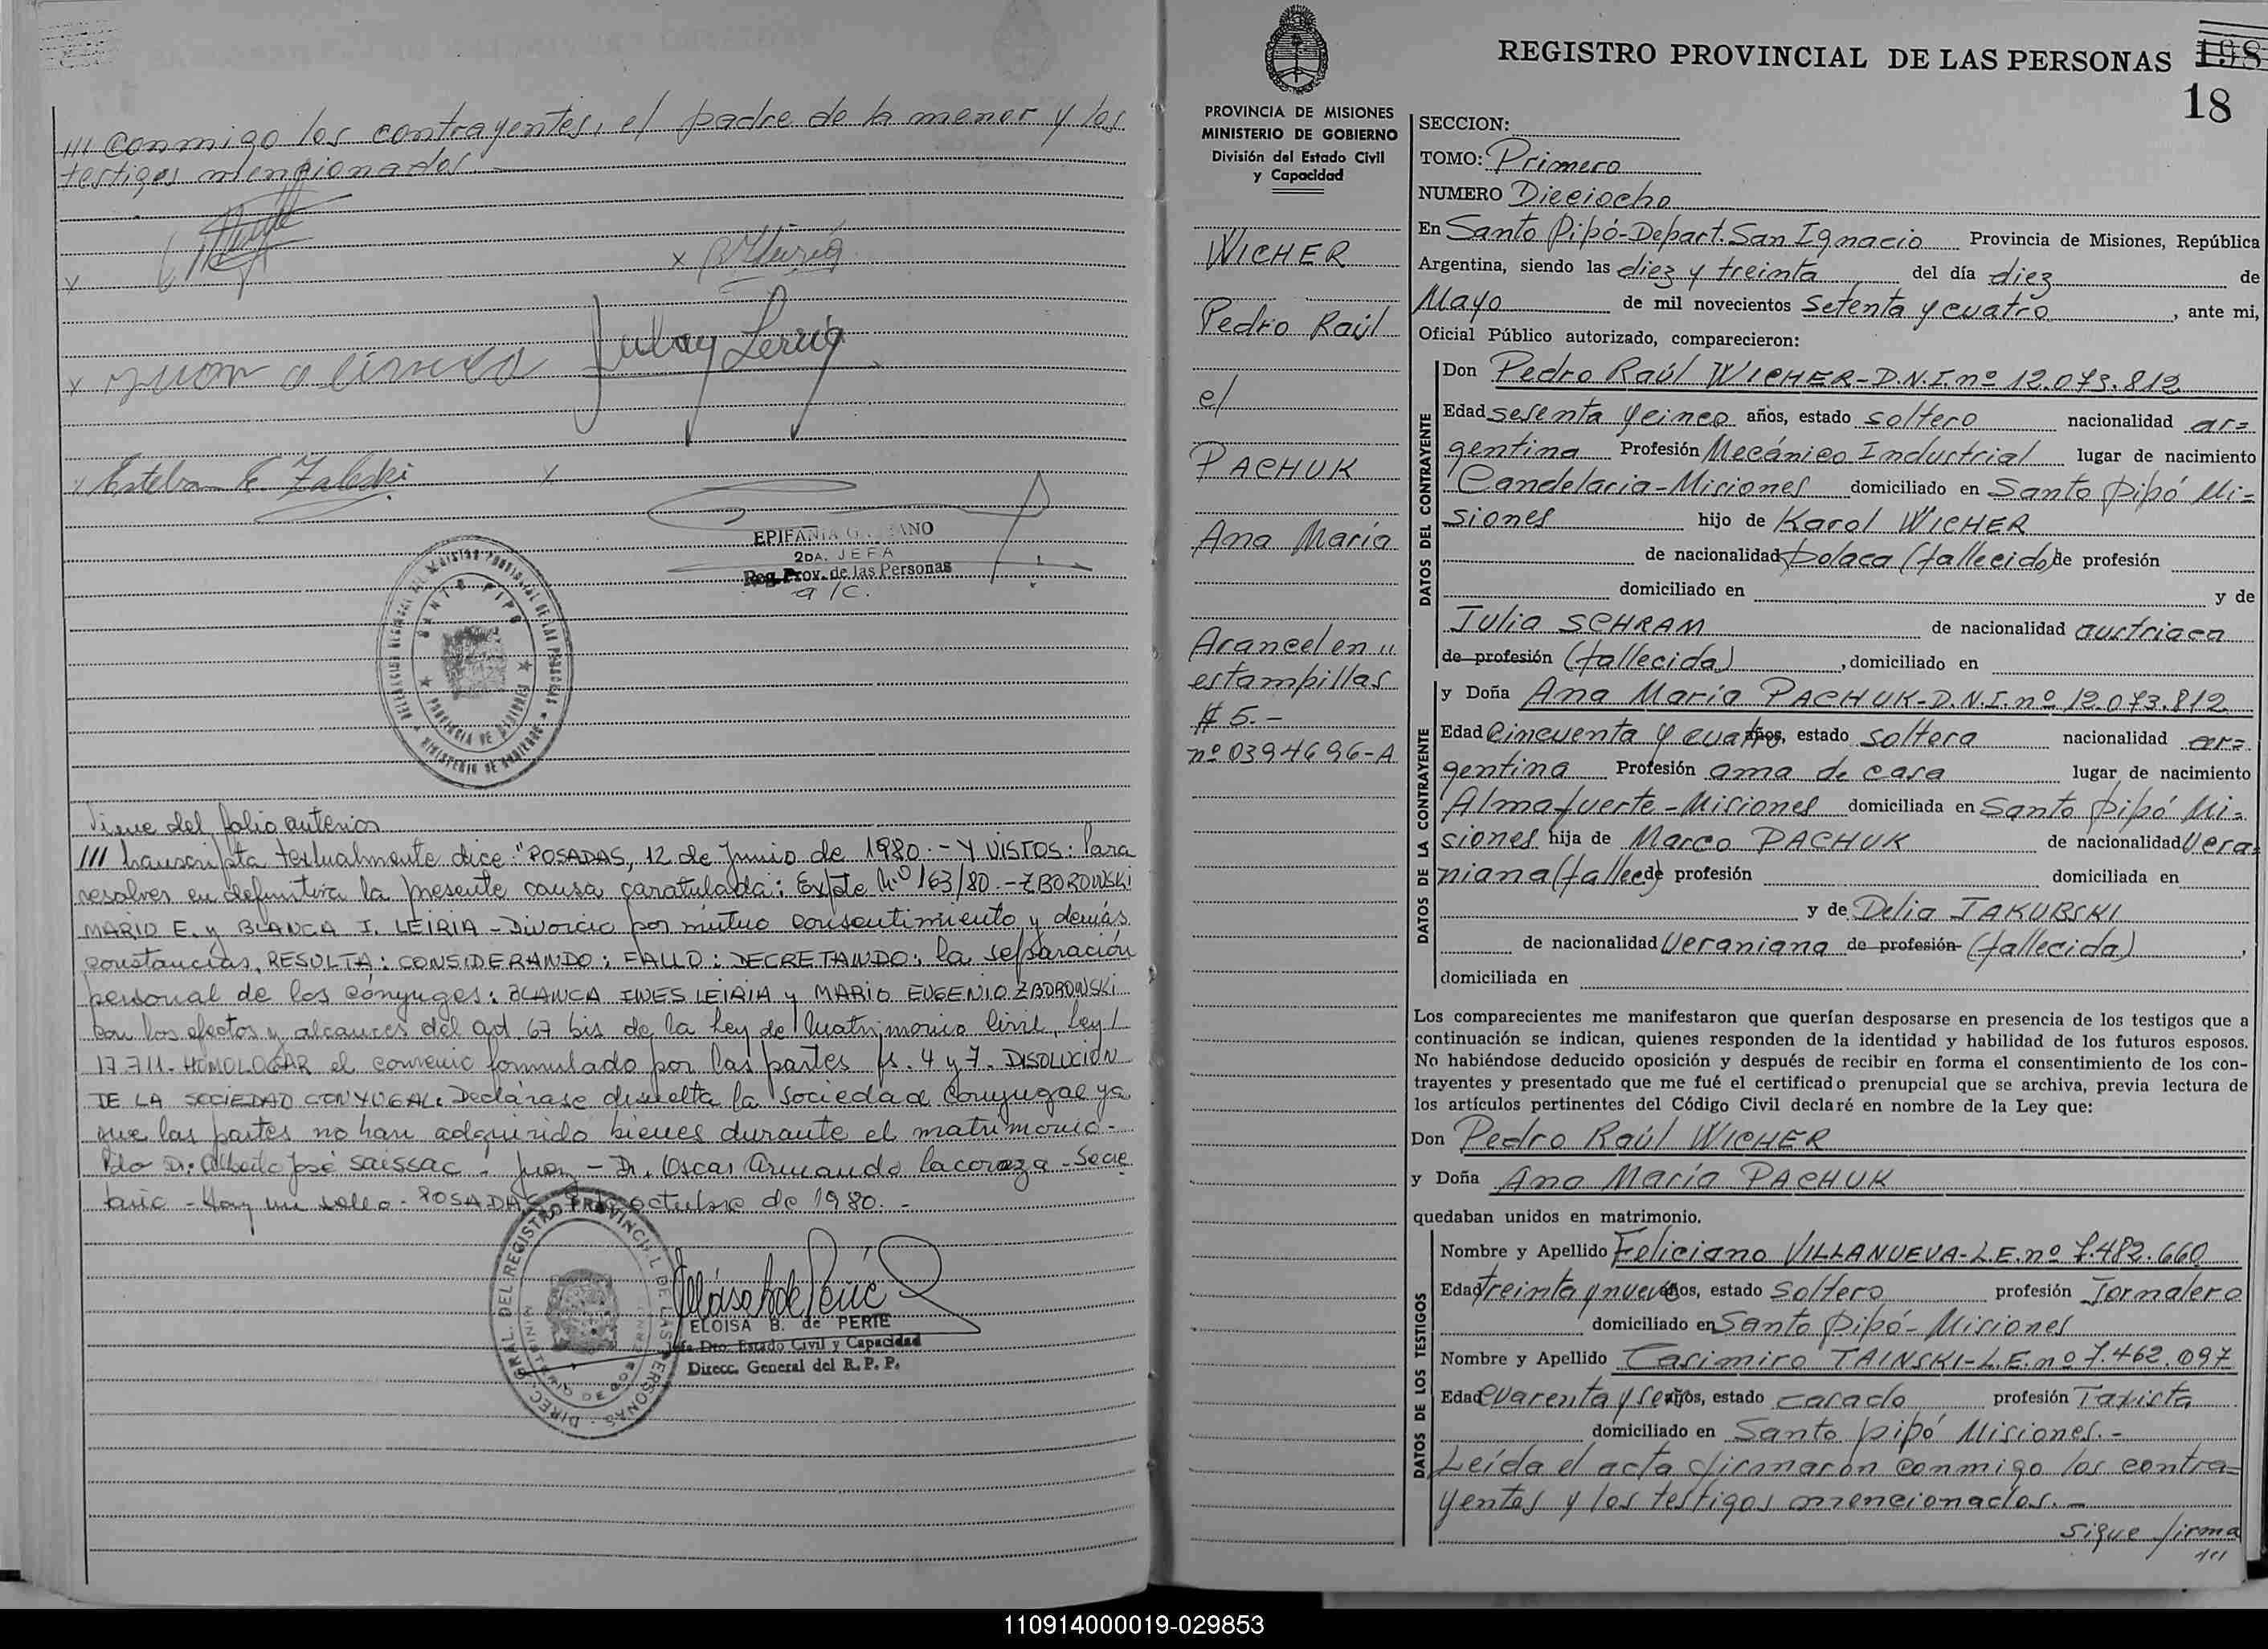 /// conmigo los contrayentes, el padre de la menor y los
testigos mencionados. —
x
x
x
Esteban E. Zaleski
x
EPIFANIA G. ANO
2DA. JEFA
Reg. Prov. de las Personas
a/c.
SANTO PIPO
PROVINCIA DE MISIONES
MINISTERIO DE GOBIERNO
Viene del folio anterior
/// transcripta textualmente dice: "POSADAS, 12 de Junio de 1980.- Y VISTOS: Para
resolver en definitiva la presente causa caratulada: Expte Nº 163/80.- ZBOROWSKI
MARIO E. y BLANCA I. LEIRIA - Divorcio por mutuo consentimiento y demás
constancias, RESULTA: CONSIDERANDO: FALLO: DECRETANDO: la separación
personal de los cónyuges: BLANCA INES LEIRIA y MARIO EUGENIO ZBOROWSKI
con los efectos y alcances del art. 67 bis de la Ley de Matrimonio Civil, Ley /
17.711. HOMOLOGAR el convenio formulado por las partes fs. 4 y 7. DISOLUCION
DE LA SOCIEDAD CONYUGAL. Declárase disuelta la sociedad conyugal ya
que las partes no han adquirido bienes durante el matrimonio-
Fdo Dr. Alberto José SAISSAC. Juez - Dr. Oscar Armando Lacoraza - Secre
tario - Hay un sello - POSADAS, octubre de 1980. -
DIREC. GRAL. DEL REGISTRO PROVINCIAL DE LAS PERSONAS
MINISTERIO DE GOBIERNO
ELOISA B. de PERIE
Jefa Dto. Estado Civil y Capacidad
Direcc. General del R. P. P.
REGISTRO PROVINCIAL DE LAS PERSONAS 198
18
PROVINCIA DE MISIONES
MINISTERIO DE GOBIERNO
División del Estado Civil
y Capacidad
WICHER
Pedro Raúl
el
PACHUK
Ana María
Arancel en "
estampillas
$ 5.-
nº 0394696-A
SECCION:
TOMO: Primero
NUMERO Dieciocho
En Santo Pipó-Depart. San Ignacio Provincia de Misiones, República
Argentina, siendo las diez y treinta del día diez de
Mayo de mil novecientos setenta y cuatro, ante mi,
Oficial Público autorizado, comparecieron:
DATOS DEL CONTRAYENTE
Don Pedro Raúl WICHER-D.N.I. nº 12.073.812
Edad sesenta y cinco años, estado soltero nacionalidad ar=
gentina Profesión Mecánico Industrial lugar de nacimiento
Candelaria-Misiones domiciliado en Santo Pipó Mi=
siones hijo de Karol WICHER
de nacionalidad polaca (fallecido) de profesión
domiciliado en y de
Julia SCHRAM de nacionalidad austriaca
de profesión (fallecida), domiciliado en
DATOS DE LA CONTRAYENTE
y Doña Ana María PACHUK-D.N.I. nº 12.073.812
Edad cincuenta y cuatro años, estado soltera nacionalidad ar=
gentina Profesión ama de casa lugar de nacimiento
Almafuerte-Misiones domiciliada en Santo Pipó Mi=
siones hija de Marco PACHUK de nacionalidad Ucra=
niana (fallec) de profesión domiciliada en
y de Delia JAKUBSKI
de nacionalidad Ucraniana de profesión (fallecida),
domiciliada en
Los comparecientes me manifestaron que querían desposarse en presencia de los testigos que a
continuación se indican, quienes responden de la identidad y habilidad de los futuros esposos.
No habiéndose deducido oposición y después de recibir en forma el consentimiento de los con-
trayentes y presentado que me fué el certificado prenupcial que se archiva, previa lectura de
los artículos pertinentes del Código Civil declaré en nombre de la Ley que:
Don Pedro Raúl WICHER
y Doña Ana María PACHUK
quedaban unidos en matrimonio.
DATOS DE LOS TESTIGOS
Nombre y Apellido Feliciano VILLANUEVA-L.E. nº 7.482.660
Edad treinta y nueve años, estado Soltero profesión Jornalero
domiciliado en Santo Pipó-Misiones
Nombre y Apellido Casimiro TAINSKI-L.E. nº 7.462.097
Edad cuarenta y seis años, estado casado profesión Taxista
domiciliado en Santo Pipó Misiones.-
Leída el acta firmaron conmigo los contra=
yentes y los testigos mencionados.-
Sigue firma
///
110914000019-029853